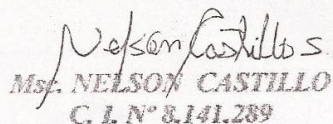 Nelson Castillo S
Msc. NELSON CASTILLO
C. I. Nº 8.141.289